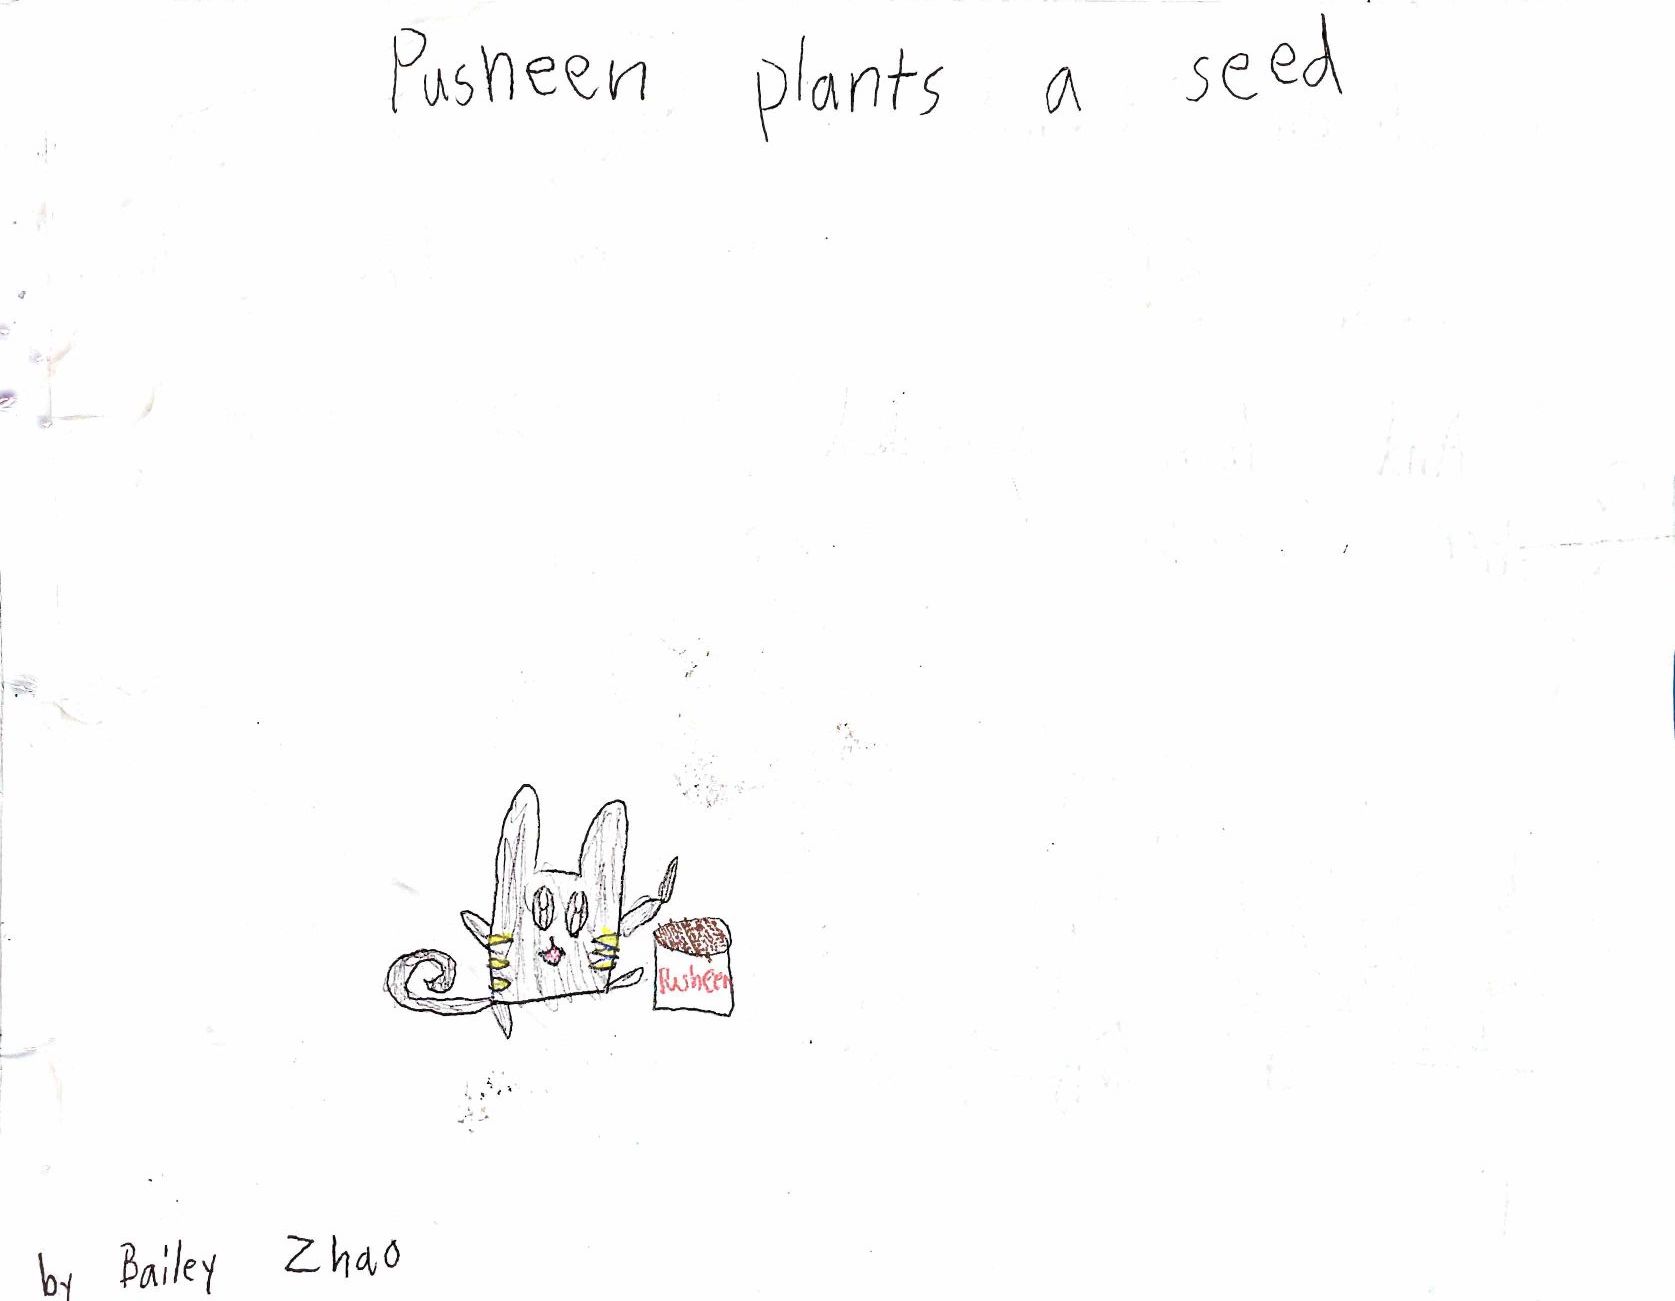 Pusheen plants a seed
Pusheen
by Bailey Zhao